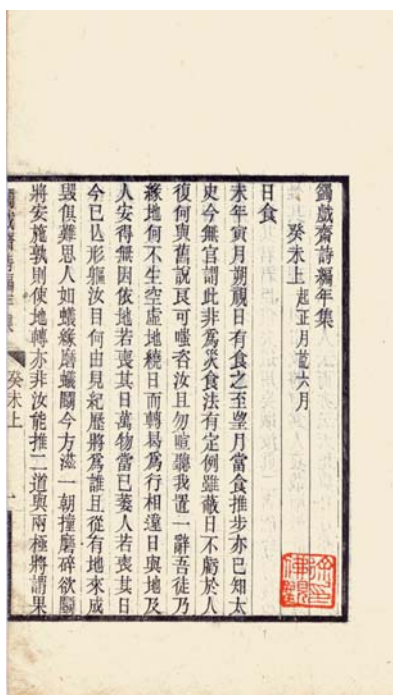 蠲戲齋詩編年集
癸未上 起正月訖六月
日食
未年寅月朔覩日有食之至望月當食推步亦已知太
史今無官謂此非爲災食法有定例雖蔽日不虧於人
復何與舊說良可嗤咨汝且勿喧聽我置一辭吾徒乃
緣地何不生空虛地繞日而轉易爲行相違日與地及
人安得無因依地若喪其日萬物當已萎人若喪其日
今已亾形軀汝目何由見紀歷將爲誰且從有地來成
毀俱難思人如蟻緣磨蟻鬭今方滋一朝撞磨碎欲鬭
將安施孰則使地轉亦非汝能推二道與兩極將謂果
癸未上 一